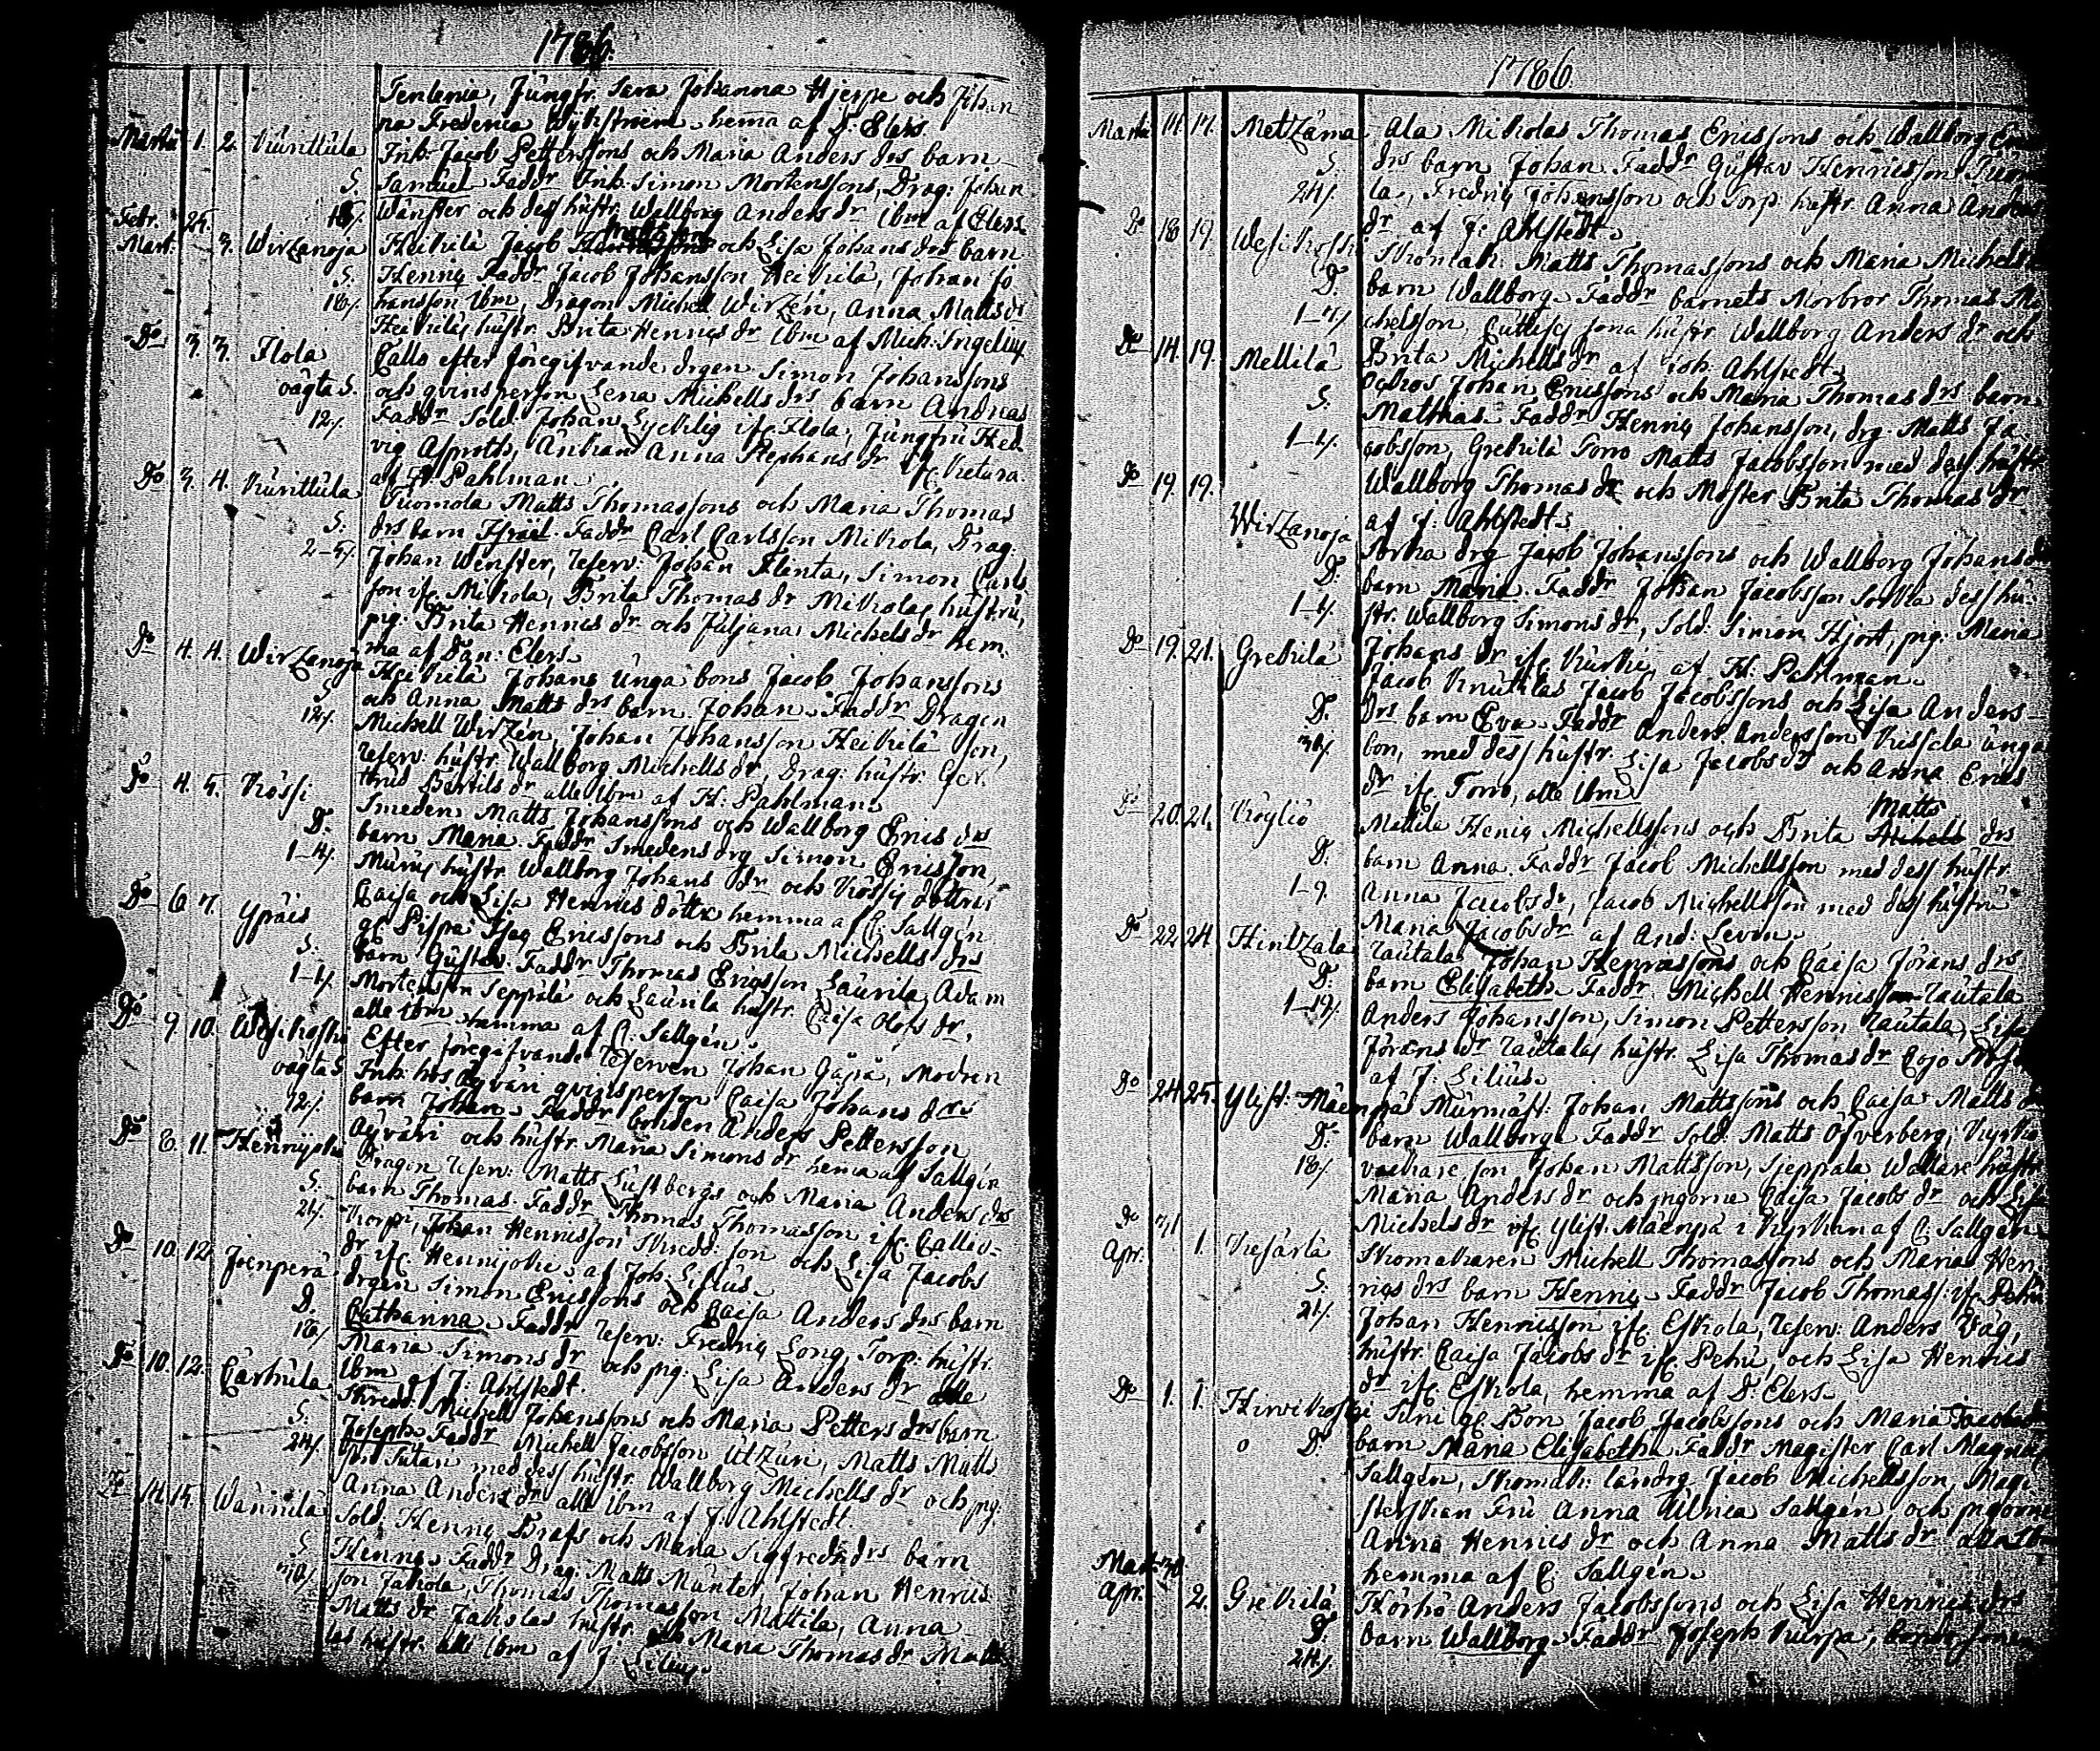 1786.
Tenlenia, Jungfr. Sara Johanna Hjerpe och Johan
na Frederica Wykström hema af D: Elers.
Martii 1. 2. Kurittula Inh: Jacob Pettersons och Maria Anders drs barn
S. Samuel Faddr Inh: Simon Mortenssons, Drag: Johan
Wänster och dess hustr. Wallborg Anders dr ibm af Elers.
Febr. 25.
Mart. 3. Wirzanoja Heikilä Jacob Mattssons och Lisa Johans drs barn
S. Henric Faddr Jacob Johansson Heikilä, Johan Jo
18/. hansson ibm, Dragon Michel Wirzén, Anna Matts dr
Heikiläs hustr. Brita Henrics dr ibm af Mich: Ingelius
Do 3. 3. Flola Calls efter föregifvande drgen Simon Johanssons
oägta S. och qvinsperson Lena Michells drs barn Andreas
12/. Faddr Sold. Johan Lycklig ifr. Flola, Jungfru Hed
vig Asproth, Änkan Anna Stephans dr ifr. Kietara.
af H: Pahlman.
Do 3. 4. Kurittula Tuomola Matts Thomassons och Maria Thomas
S. drs barn Israel. Faddr Carl Carlsson Mikola, Drag:
2-5/. Johan Wenster, Reserv: Johan Flenta, Simon Carls
son ifr. Mikola, Brita Thomas dr Mikolas hustru,
pig: Brita Henrics dr och Juljana Michels dr hem.
ma af Dan: Elers.
Do 4. 4. Wirzanoja Heikilä Johans unga bons Jacob Johanssons
S. och Anna Matts drs barn Johan. Faddr Dragon
12/. Michell Wirzén, Johan Johansson Heikilä son,
Reserv: hustr. Wallborg Michells dr, Drag: hustr: Ger.
thrud Bärtils dr alle ibm af H: Pahlman.
Do 4. 5. Kössi Smeden Matts Johanssons och Wallborg Erics drs
D. barn Maria. Faddr Smedens drg Simon Ericsson,
1-4/. Muris hustr. Wallborg Johans dr och Kössis döttrar
Caisa och Lisa Henrics döttr hemma af C: Sallgén
Do 6 7. Ypäis gl. Pispa Isac Ericssons och Brita Michells drs
S. barn Gustav. Faddr Thomas Ericsson Laurila, Adam
1-4/. Mortensson Seppälä och Laurila hustr. Caisa Olofs dr,
alle ibm hemma af C. Sallgén.
Do 9 10. Wesikoski Efter föregifvande Reserven Johan Gåpå, Modren
oägta S. Inh: hos Äyväri qvinsperson Caisa Johans drs
12/. barn Johan. Faddr bonden Anders Pettersson
Äyväri och hustr. Maria Simons dr hema af Sallgén
Do 8. 11. Hennijoki Dragon Reserv: Matts Lustbergs och Maria Anders drs
S. barn Thomas. Faddr Thomas Thomasson ifr. Callio-
21/. Johan Henrisson Skredd: son och Lisa Jacobs
dr ifr. Hennijoki. af Joh: Lilius.
Do 10. 12 Joenperä drgen Simon Ericssons och Caisa Anders drs barn
D. Catharina. Faddr Reserv: Fredric Long, Torp: hustr.
18/ Maria Simons dr och pig: Lisa Anders dr alle
ibm af J: Ahlstedt.
Do 10. 12. Carhula Skredd: Michell Johanssons och Maria Petters drs barn
S. Joseph. Faddr Michell Jacobsson Utzuri, Matts Matts
24/. son Sutan med dess hustr. Wallborg Michells dr och pig:
Anna Anders dr alle ibm af J: Ahlstedt.
Do 14. 15. Wännilä Sold. Henric Brafs och Maria Sigfreds drs barn
S. Henric. Faddr Drag: Matts Munter, Johan Henrics
30/. son Jakola, Thomas Thomasson Mattila, Anna
Matts dr Jakolas hustr. Maria Thomas dr Matti
las hustr. alle ibm af J Lilius.
1786
Martii 11. 17. Metzäma Ala Mikolas Thomas Ericssons och Wallborg
S. drs barn Johan Faddr Gustav Henricsson
24/. la, Fredric Johansson och Torp: hustr. Anna Anders
dr af J: Ahlstedt.
Do 18 19. Wesikoski Skomak: Matts Thomassons och Maria Michels
D. barn Wallborg. Faddr barnets Morbror Thomas Mi
1-4/ chelsson, Cuttiss sona hustr Wallborg Anders dr och
Brita Michells dr af Joh. Ahlstedt.
Do 14. 19. Mellilä Johan Ericssons och Maria Thomas drs barn
S. Mathias. Faddr Henric Johansson, drg. Matts Ja
1-4/. cobsson, Grekilä Torro Matts Jacobsson med dess hustr
Wallborg Thomas dr och Moster Brita Thomas dr
af J: Ahlstedt.
Do 19. 19. Wirzanoja Sorka drg Jacob Johanssons och Wallborg Johans
D. barn Maria. Faddr Johan Jacobsson Sorka dess hu.
1-4/. str. Wallborg Simons dr, Sold. Simon Hjort, pig: Maria
Johans dr ifr. Kurki, af H: Pahlman.
Do 19. 21. Grekilä Jacob Knutilas Jacob Jacobssons och Lisa Anders
D. drs barn Eva. Faddr Anders Andersson Kissela unga
30/. bon, med dess hustr. Lisa Jacobs dr och Anna Erics
dr ifr. Torro, alle ibm.
Do 20. 21. Köyliö Mattila Henric Michellssons och Brita Matts drs
D. barn Anna Faddr Jacob Michellsson med dess hustr
1-9. Anna Jacobs dr, Jacob Michellsson med dess hustru
Maria Jacobs dr af And: Levin.
Do 22 24. Hintzala Rautala Johan Henricssons och Caisa Jörans drs
D. barn Elisabeth. Faddr. Michell Henricsson Rautala
Anders Johansson, Simon Pettersson Rautala, Lisa
Jörans dr Rautalas hustr. Lisa Thomas dr Cojo
af J: Lilius.
Do 24. 25. Ylist. Mäenpää Murmäst: Johan Mattssons och Caisa Matts
D. barn Wallborg. Faddr Sold. Matts Öfverberg, Kyrko
18/. vachare son Johan Mattsson, Sjeppala Wallare hustr
Maria Anders dr och pigorne Caisa Jacobs dr och Lisa
Michels dr ifr Ylist. Mäenpä i Kyrkan af C: Sallgén
Do 31
Apr. 1. Kiesärlä Skomakaren Michell Thomassons och Maria Hen
S. rics drs barn Henric. Faddr Jacob Thomass: ifr Pehu
21/. Johan Henricsson ifr. Eskola, Reserv: Anders Våg,
hustr. Caisa Jacobs dr ifr. Pehu, och Lisa Henrics
dr ifr. Eskola, hemma af D: Elers.
Do 1. 1. Hirvikoski Suni gl. Bon Jacob Jacobssons och Maria Jacobs
D. barn Maria Elisabeth. Faddr Magister Carl Magnus
Sallgén, Skomak: landrg Jacob Michellsson, Magi
sterskan Fru Anna Ulrica Sallgén och pigorne
Anna Henrics dr och Anna Matts dr
hemma af C: Sallgén.
Mart. 30
Apr. 2. Grekilä Körhö Anders Jacobssons och Lisa Henrics drs
D. barn Wallborg. Faddr Joseph Kurpa,
24/.